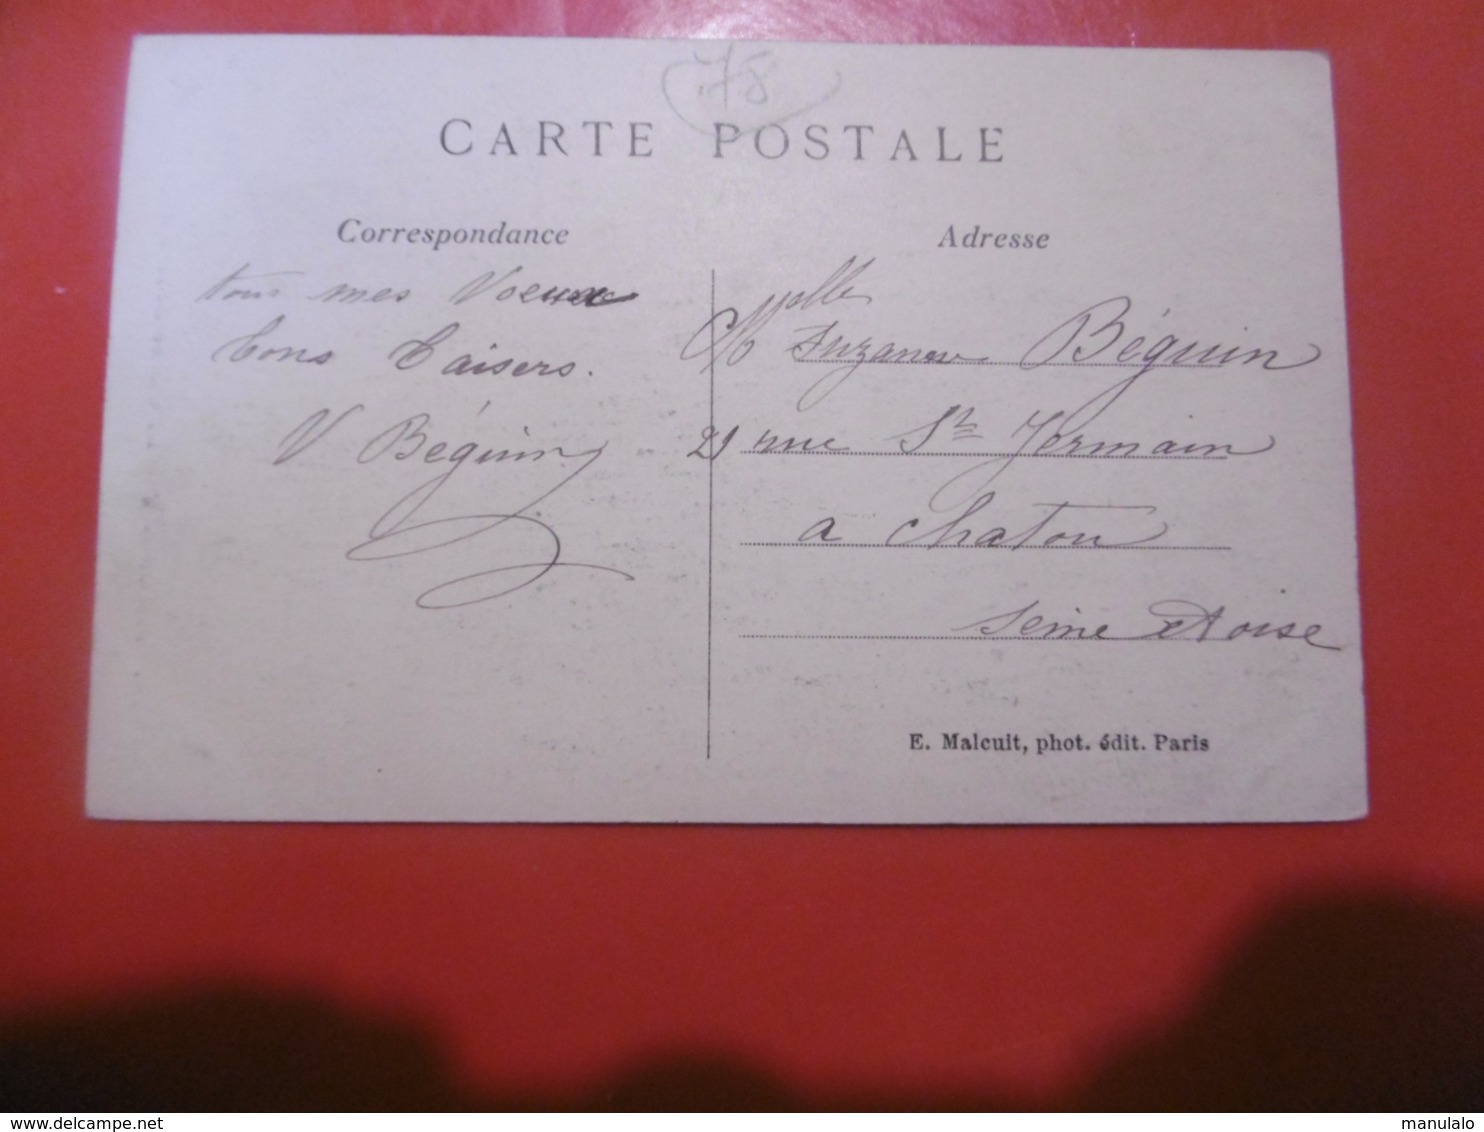 78
CARTE POSTALE
Correspondance
tous mes Voeux
bons baisers.
V Béguin
Adresse
Melle Suzanne Béguin
29 rue St Germain
a Chatou
Seine et Oise
E. Malcuit, phot. édit. Paris
http://www.delcampe.net
manulalo